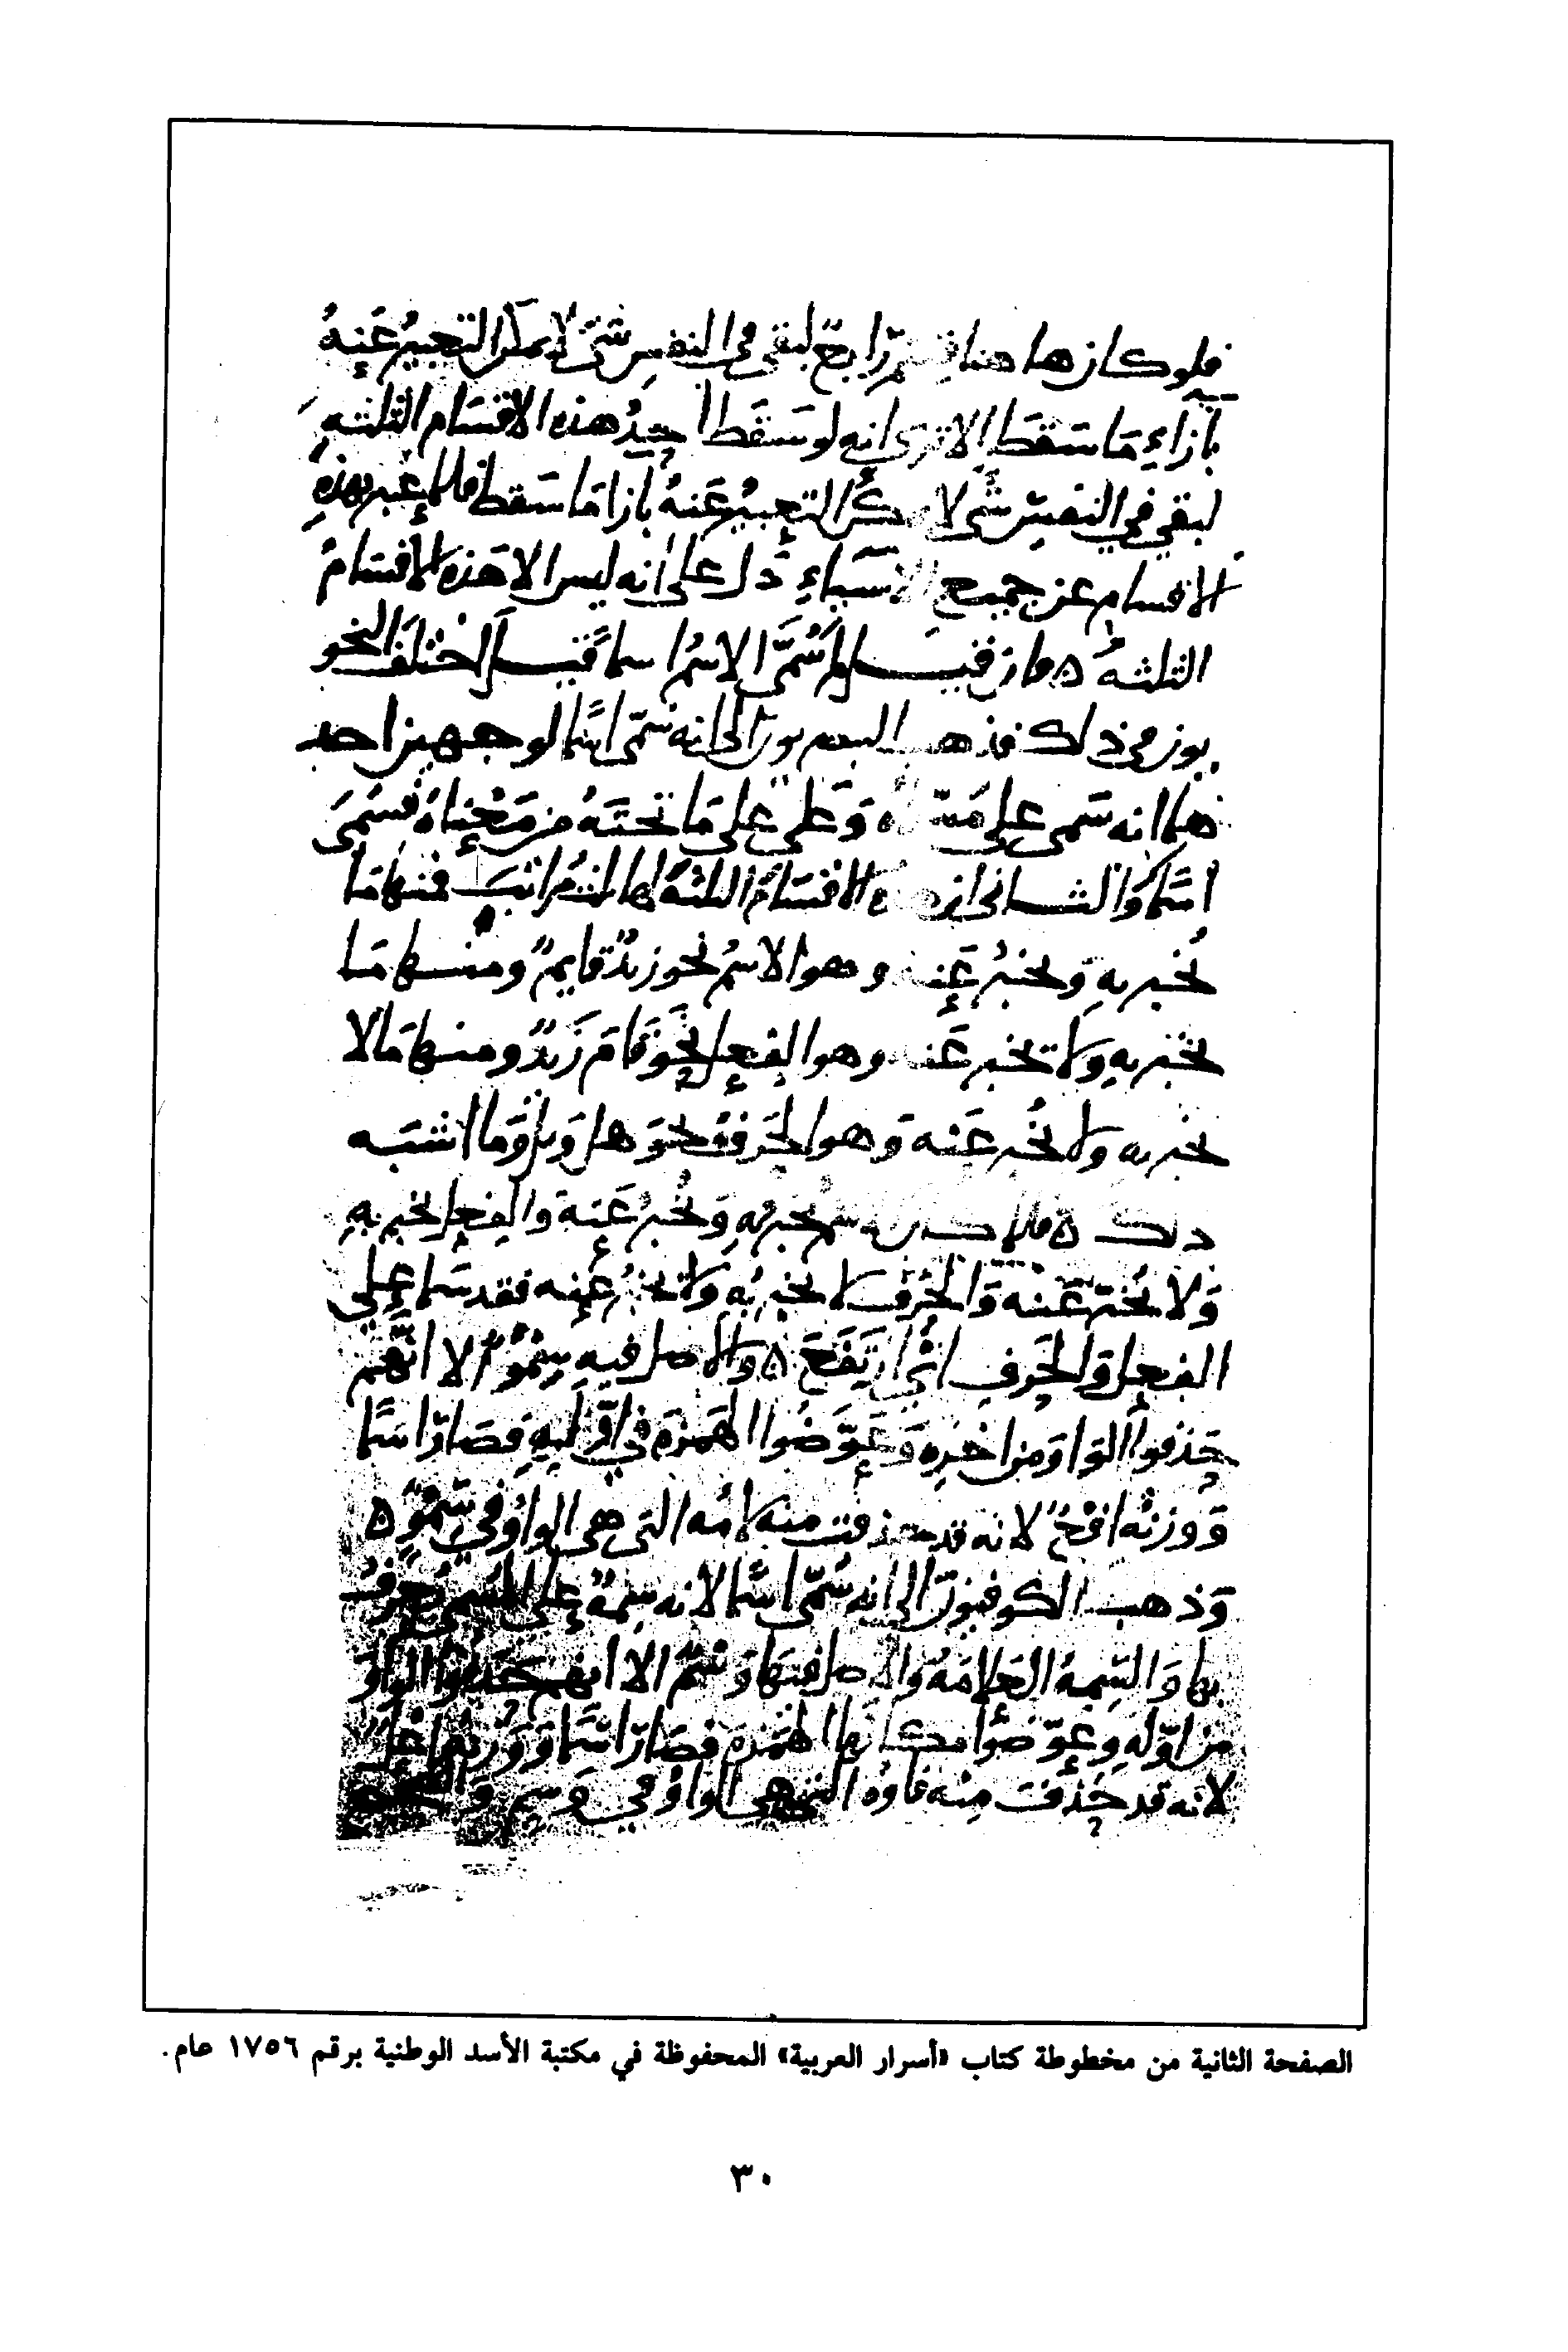 فلو كان هاهنا قسم رابع لبقي في النفس شئ لا يمكن التعبير عنه
بازاء ما سقط الا ترى انه لو سقط احد هذه الاقسام الثلثه
لبقي في النفس شئ لا يمكن التعبير عنه بازا ما سقط فلما عبر بهذه
الاقسام عن جميع الاشياء دل على انه ليس الا هذه الاقسام
الثلثه ه فان قيل لم سمى الاسم اسما قيل اختلف النحو
يون في ذلك فذهب البصريون الى انه سمى اسما لوجهين احد
هما انه سمى على مسماه وعلى على ما تحته من معناه فسمى
اسما والثانى ان هذه الاقسام الثلثه لها ثلث مراتب فمنها ما
يخبر به ويخبر عنه وهو الاسم نحو زيد قايم ومنها ما
يخبر به ولا يخبر عنه وهو الفعل نحو قام زيد ومنها ما لا
يخبر به ولا يخبر عنه وهو الحرف نحو هل وبل وما اشبه
ذلك ه فلما كان الاسم يخبر به ويخبر عنه والفعل يخبر به
ولا يخبر عنه والحرف لا يخبر به ولا يخبر عنه فقد سما على
الفعل والحرف اى ارتفع ه والاصل فيه سمو الا انهم
حذفوا الواو من اخره وعوضوا الهمزه في اوله فصار اسما
ووزنه افع لانه قد حذفت منه لامه التى هى الواو في سمو ه
وذهب الكوفيون الى انه سمى اسما لانه سمه على المسمى يعرف
بها والسمه العلامه والاصل فيها وسم الا انهم حذفوا الواو
من اوله وعوضوا مكانها الهمزه فصار اسما ووزنه اعل
لانه قد حذفت منه فاوه التى هى الواو في وسم
الصفحة الثانية من مخطوطة كتاب «أسرار العربية» المحفوظة في مكتبة الأسد الوطنية برقم ١٧٥٦ عام.
٣٠